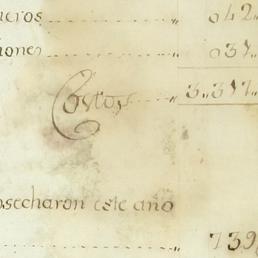 ueros ,, 042,,
iones ,, 037,,
Costos ,, 3,,317,,
osecharon este año
,, 739